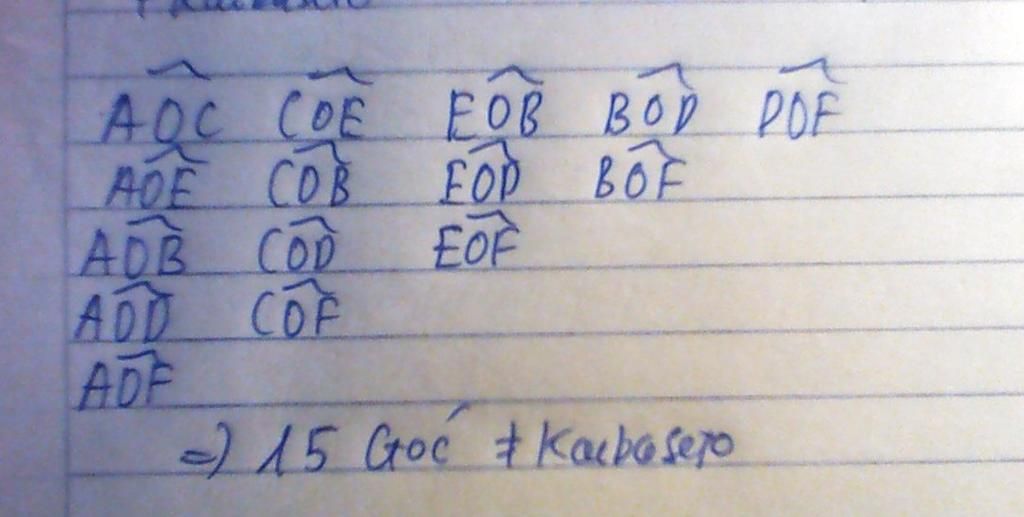 AOC COE EOB BOD DOF
AOE COB EOD BOF
AOB COD EOF
AOD COF
AOF
=) 15 Góc ≠ Kaebasero